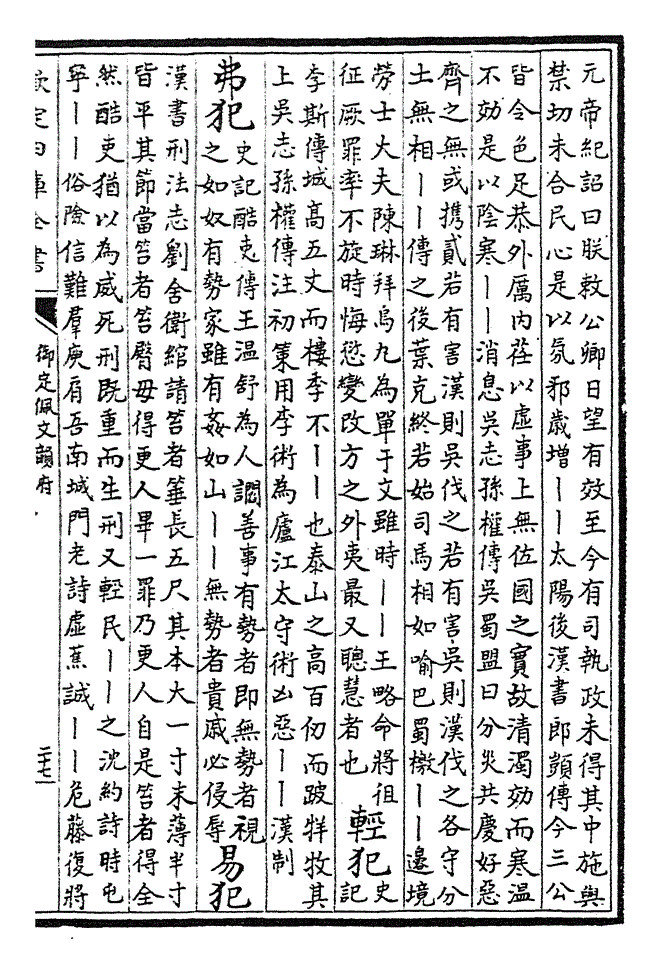 元帝紀詔曰朕敕公卿日望有效至今有司執政未得其中施與
禁切未合民心是以氛邪歲增丨丨太陽後漢書郎顗傳今三公
皆令色足恭外厲内荏以虛事上無佐國之實故清濁効而寒温
不効是以陰寒丨丨消息吳志孫權傳吳蜀盟曰分災共慶好惡
齊之無或攜貳若有害漢則吳伐之若有害吳則漢伐之各守分
土無相丨丨傳之後葉克終若始司馬相如喻巴蜀檄丨丨邉境
勞士大夫陳琳拜烏丸為單于文雖時丨丨王略命將徂
征厥罪率不旋時悔慾變改方之外夷最又聰慧者也
輕犯
史
記
李斯傳城高五丈而樓季不丨丨也泰山之高百仞而跛牂牧其
上吳志孫權傳注初策用李術為廬江太守術凶惡丨丨漢制
弗犯
史記酷吏傳王温舒為人讇善事有勢者即無勢者視
之如奴有勢家雖有姦如山丨丨無勢者貴戚必侵辱
易犯
漢書刑法志劉舍衛綰請笞者箠長五尺其本大一寸末薄半寸
皆平其節當笞者笞臀毋得更人畢一罪乃更人自是笞者得全
然酷吏猶以為威死刑既重而生刑又輕民丨丨之沈約詩時屯
寧丨丨俗險信難羣庾肩吾南城門老詩虛蕉誠丨丨危藤復將
欽定四庫全書
御定佩文韻府
二十七